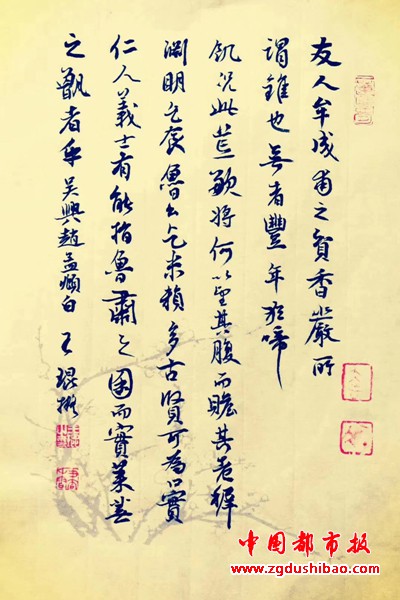 友人牟成甫之貧香嚴所
謂錐也無者豐年猶啼
飢況此荒歉將何以望其腹而贍其老稺
淵明乞食魯公乞米賴多古賢可為口實
仁人義士有能指魯肅之囷而實萊蕪
之甑者乎吴興趙孟頫白 王琨
中国都市报
www.zgdushibao.com